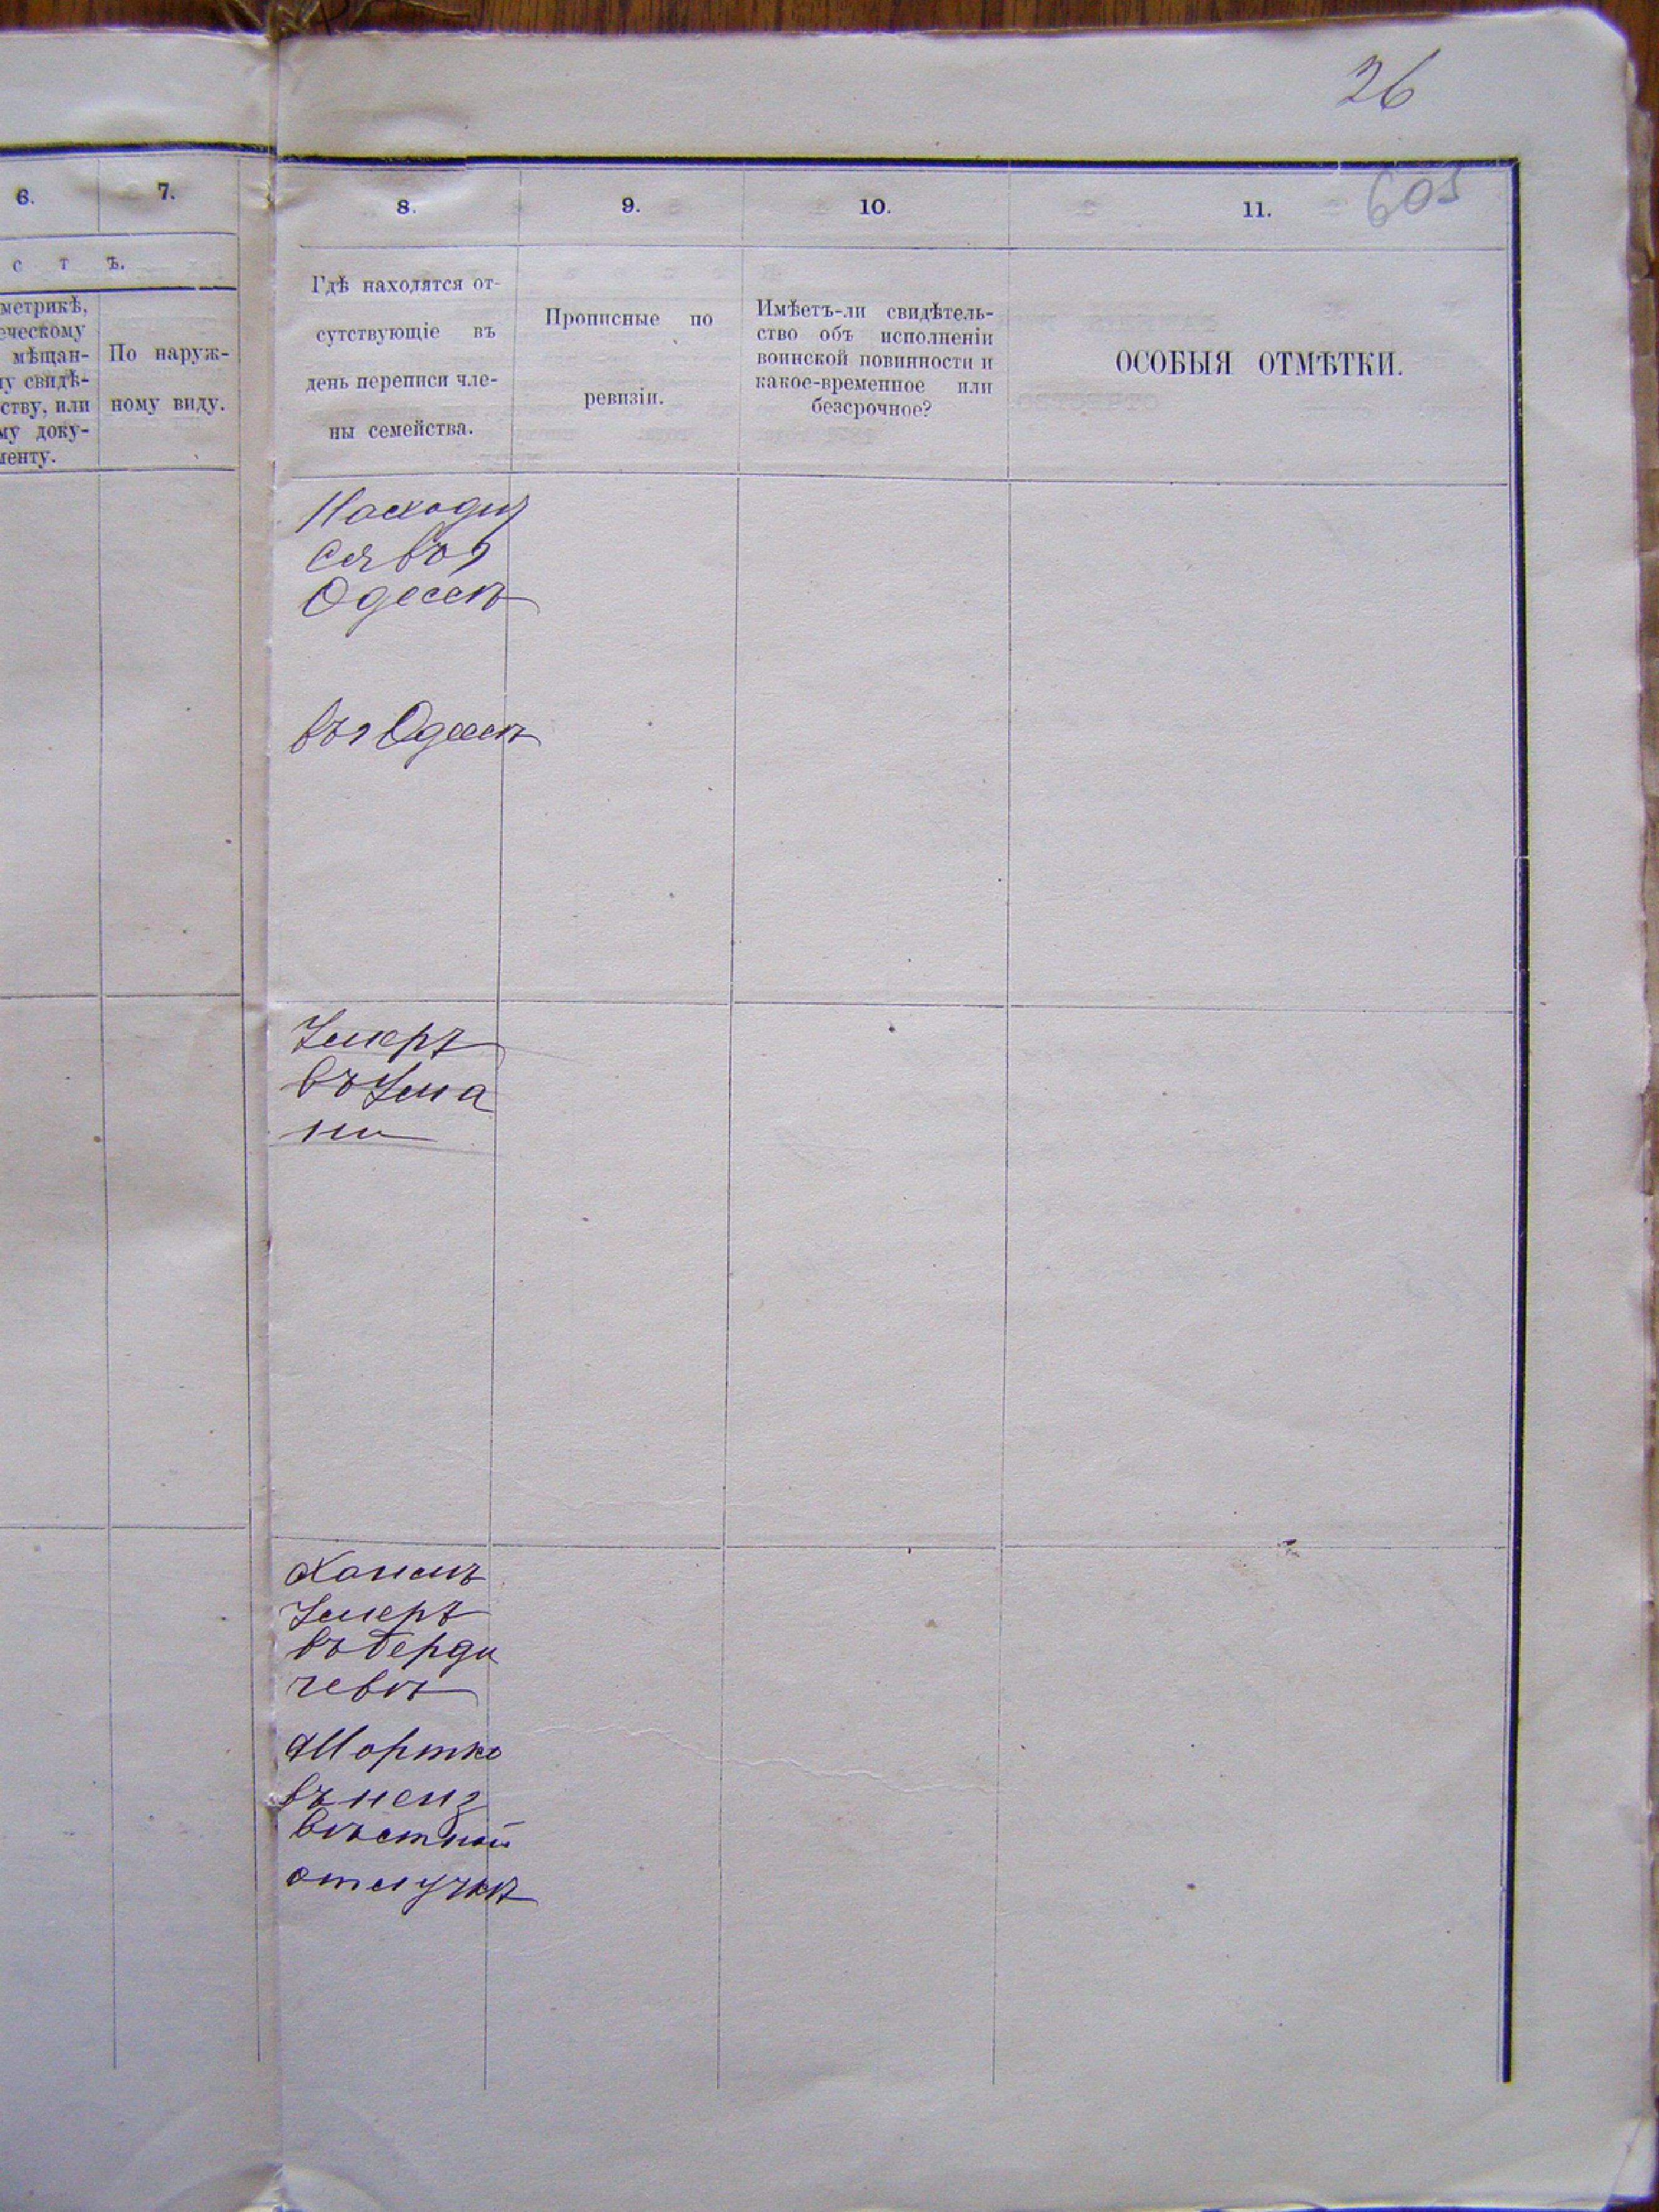 26
605
6.
7.
8.
9.
10.
11.
с т ъ.
метрикѣ,
еческому
мѣщан-
у свидѣ-
ству, или
му доку-
менту.
По наруж-
ному виду.
Гдѣ находятся от-
сутствующіе въ
день переписи чле-
ны семейства.
Прописные по
ревизіи.
Имѣетъ-ли свидѣтель-
ство объ исполненіи
воинской повинности и
какое-временное или
безсрочное?
ОСОБЫЯ ОТМѢТКИ.
Находит
ся въ
Одессѣ
въ Одессѣ
Умеръ
въ Ума
ни
Умеръ
въ Берди
чевѣ
Мортко
въ неиз
вѣстной
отлучкѣ